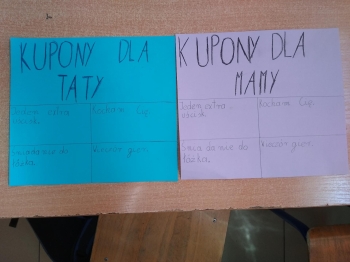 KUPONY DLA
TATY
Jeden extra
uścisk.
Kocham Cię.
Śniadanie do
łóżka.
Wieczór gier.
KUPONY DLA
MAMY
Jeden extra
uścisk.
Kocham Cię.
Śniadanie do
łóżka.
Wieczór gier.